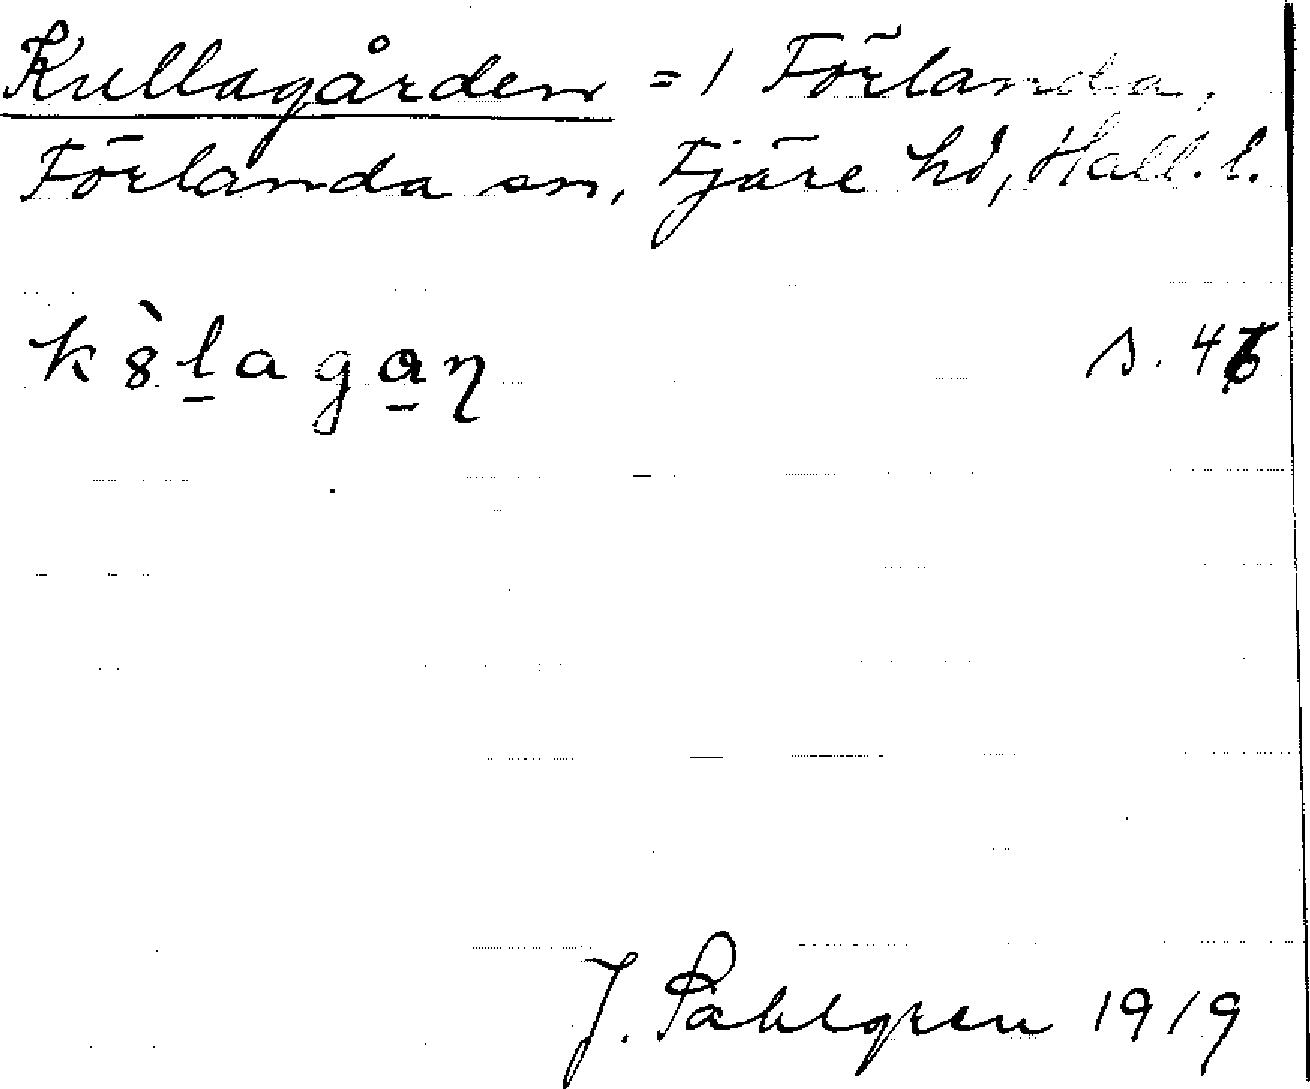 Kullagården = 1 Förlanda,
Förlanda sn, Fjäre hd, Hall. l.
k8̀l̠aga̠ŋ
s. 46
J. Sahlgren 1919